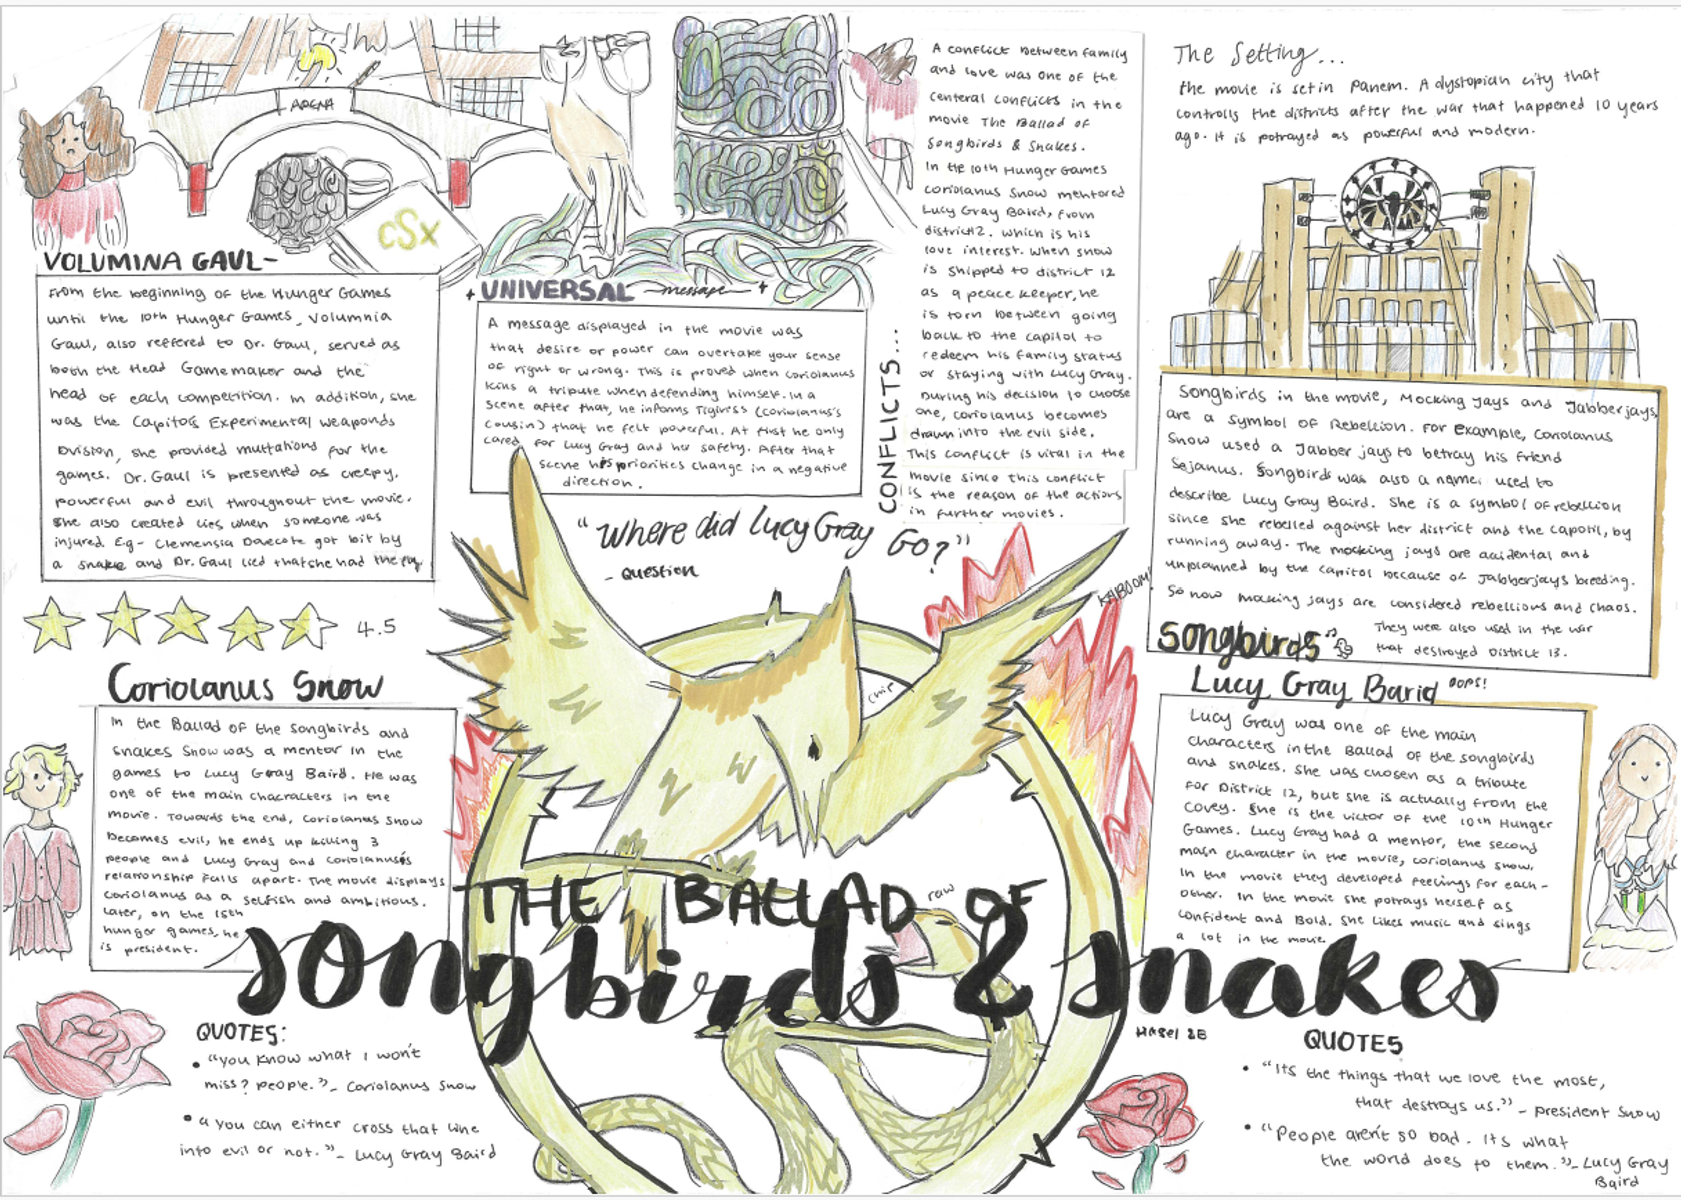 ARENA
cSx
VOLUMINA GAUL-
From the beginning of the Hunger Games
until the 10th Hunger Games, Volumnia
Gaul, also reffered to Dr. Gaul, served as
both the Head Gamemaker and the
head of each competition. In addition, she
was the Capitols Experimental weaponds
Division, she provided muttations for the
games. Dr. Gaul is presented as creepy,
powerful and evil throughout the movie.
She also created lies when someone was
injured. Eg- Clemensia Dovecote got bit by
a snake and Dr. Gaul lied that she had the flu
4.5
UNIVERSAL message
A message displayed in the movie was
that desire or power can overtake your sense
of right or wrong. This is proved when coriolanus
kills a tribute when defending himself. In a
scene after that, he informs Tigress (coriolanus's
cousin) that he felt powerful. At first he only
cared for Lucy Gray and her safety. After that
scene his priorities change in a negative
direction.
CONFLICTS...
A conflict between family
and love was one of the
centeral conflicts in the
movie The Ballad of
Songbirds & Snakes.
In the 10th Hunger Games
coriolanus snow mentored
Lucy Gray Baird, from
district 2. which is his
love interest. When snow
is shipped to district 12
as a peace keeper, he
is torn between going
back to the capitol to
redeem his family status
or staying with Lucy Gray.
During his decision to choose
one, coriolanus becomes
drawn into the evil side.
This conflict is vital in the
movie since this conflict
is the reason of the actions
in further movies.
The Setting...
the movie is set in Panem. A dystopian city that
controlls the districts after the war that happened 10 years
ago. It is potrayed as powerful and modern.
Songbirds in the movie, Mocking Jays and Jabberjays
are a symbol of Rebellion. For example, Coriolanus
Snow used a Jabber jays to betray his friend
Sejanus. Songbirds was also a name used to
describe Lucy Gray Baird. She is a symbol of rebellion
since she rebelled against her district and the capotil, by
running away. The mocking jays are acidental and
unplanned by the capitol because of Jabberjays breeding.
So now mocking jays are considered rebellious and chaos.
They were also used in the war
that destroyed District 13.
songbirds
"Where did Lucy Gray Go?"
- Question
KABOOM!
chip
Coriolanus Snow
In the Ballad of the songbirds and
snakes Snow was a mentor in the
games to Lucy Gray Baird. He was
one of the main characters in the
movie. Towards the end, coriolanus snow
becomes evil, he ends up killing 3
people and Lucy Gray and coriolanus's
relationship falls apart. The movie displays
coriolanus as a selfish and ambitious.
Later, on the 15th
hunger games, he
is president.
Lucy Gray Barid OOPS!
Lucy Gray was one of the main
characters in the Ballad of the songbirds
and snakes. She was chosen as a tribute
for District 12, but she is actually from the
Covey. She is the victor of the 10th Hunger
Games. Lucy Gray had a mentor, the second
main character in the movie, coriolanus snow.
In the movie they developed feelings for each-
other. In the movie she potrays herself as
confident and Bold. She likes music and sings
a lot in the movie.
raw
THE BALLAD OF
songbirds & snakes
Hasel 8E
QUOTES:
• "you know what I won't
miss? people." - Coriolanus Snow
• "you can either cross that line
into evil or not." - Lucy Gray Baird
QUOTES
• "Its the things that we love the most,
that destroys us." - president Snow
• "People aren't so bad. Its what
the world does to them." - Lucy Gray
Baird